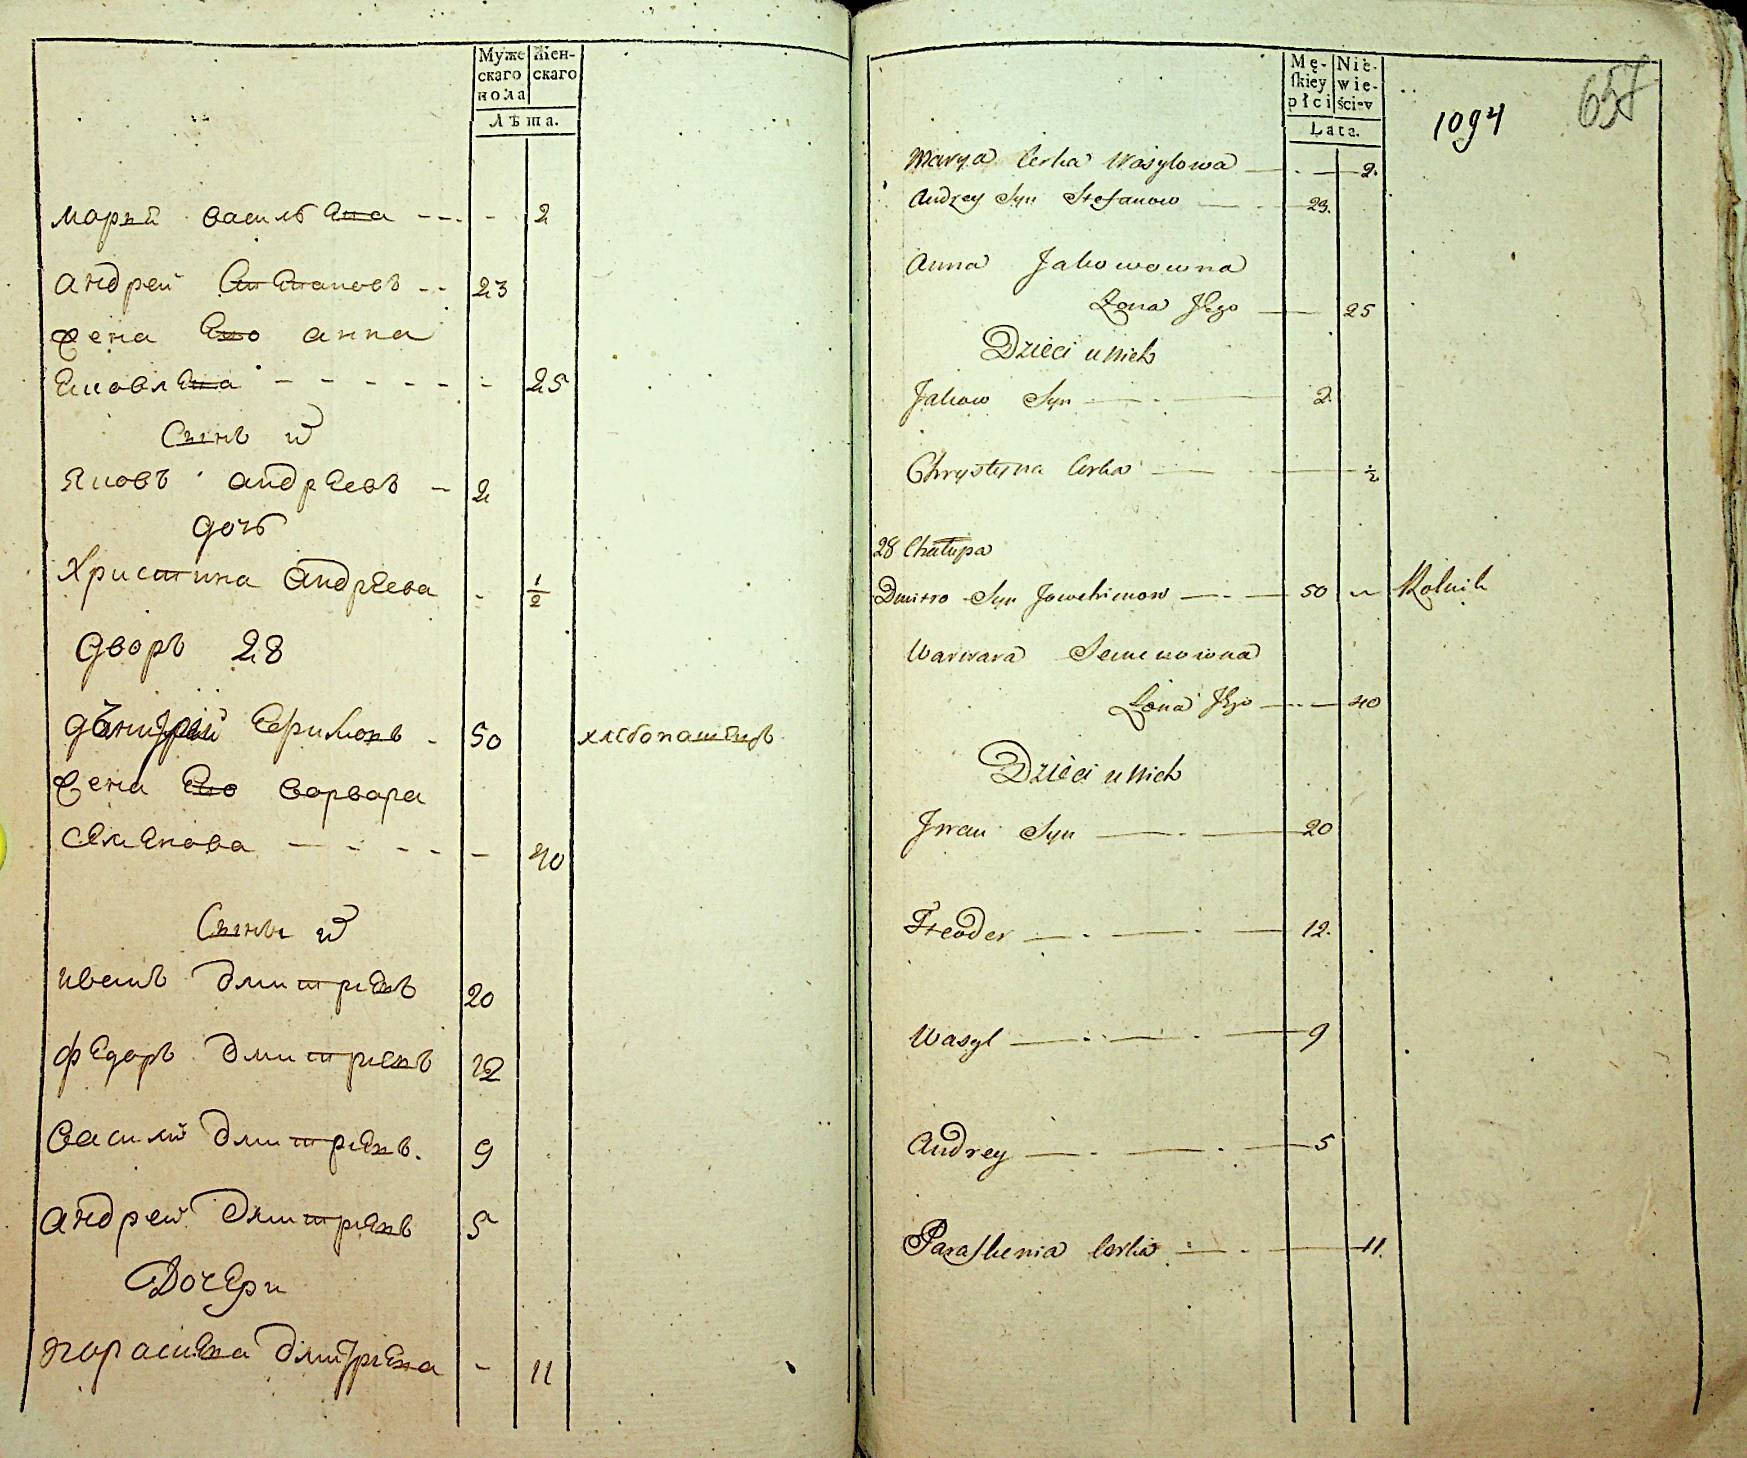 Муже
скаго
пола
Жен-
скаго
Лѣта.
марѣй василь ева - - - - 2
андрей Степановъ - - 23
жена Его анна
Еиовлева - - - - - - 25
Сынъ
Яковъ андреевъ - 2
дочь
Христина андреева - 1/2
дворъ 28
50 хлебопашецъ
жена Его варвара
семенова - - - - - 40
Сыны
иванъ дмитриевъ 20
федоръ дмитриевъ 12
василий дмитриевъ. 9
андрей дмитриевъ 5
Дочери
парасковеа дмитриева - 11
Mę-
skiey
płci
Nie-
wie-
ściey
Lata.
1094
657
Marya Corka Wasylowa 2.
Andrey Syn Stefanow 23.
Anna Jakowowna
Żona Jego 25
Dzieci u nich
Jakow Syn 2.
Chrystyna Corka 1/2
28 Chałupa
Dmitro Syn Jowchimow 50 Rolnik
Warwara Semenowna
Żona Jego 40
Dzieci u nich
Jwan Syn 20
Fteoder 12.
Wasyl 9
Andrey 5
Paraskenia Corka 11.